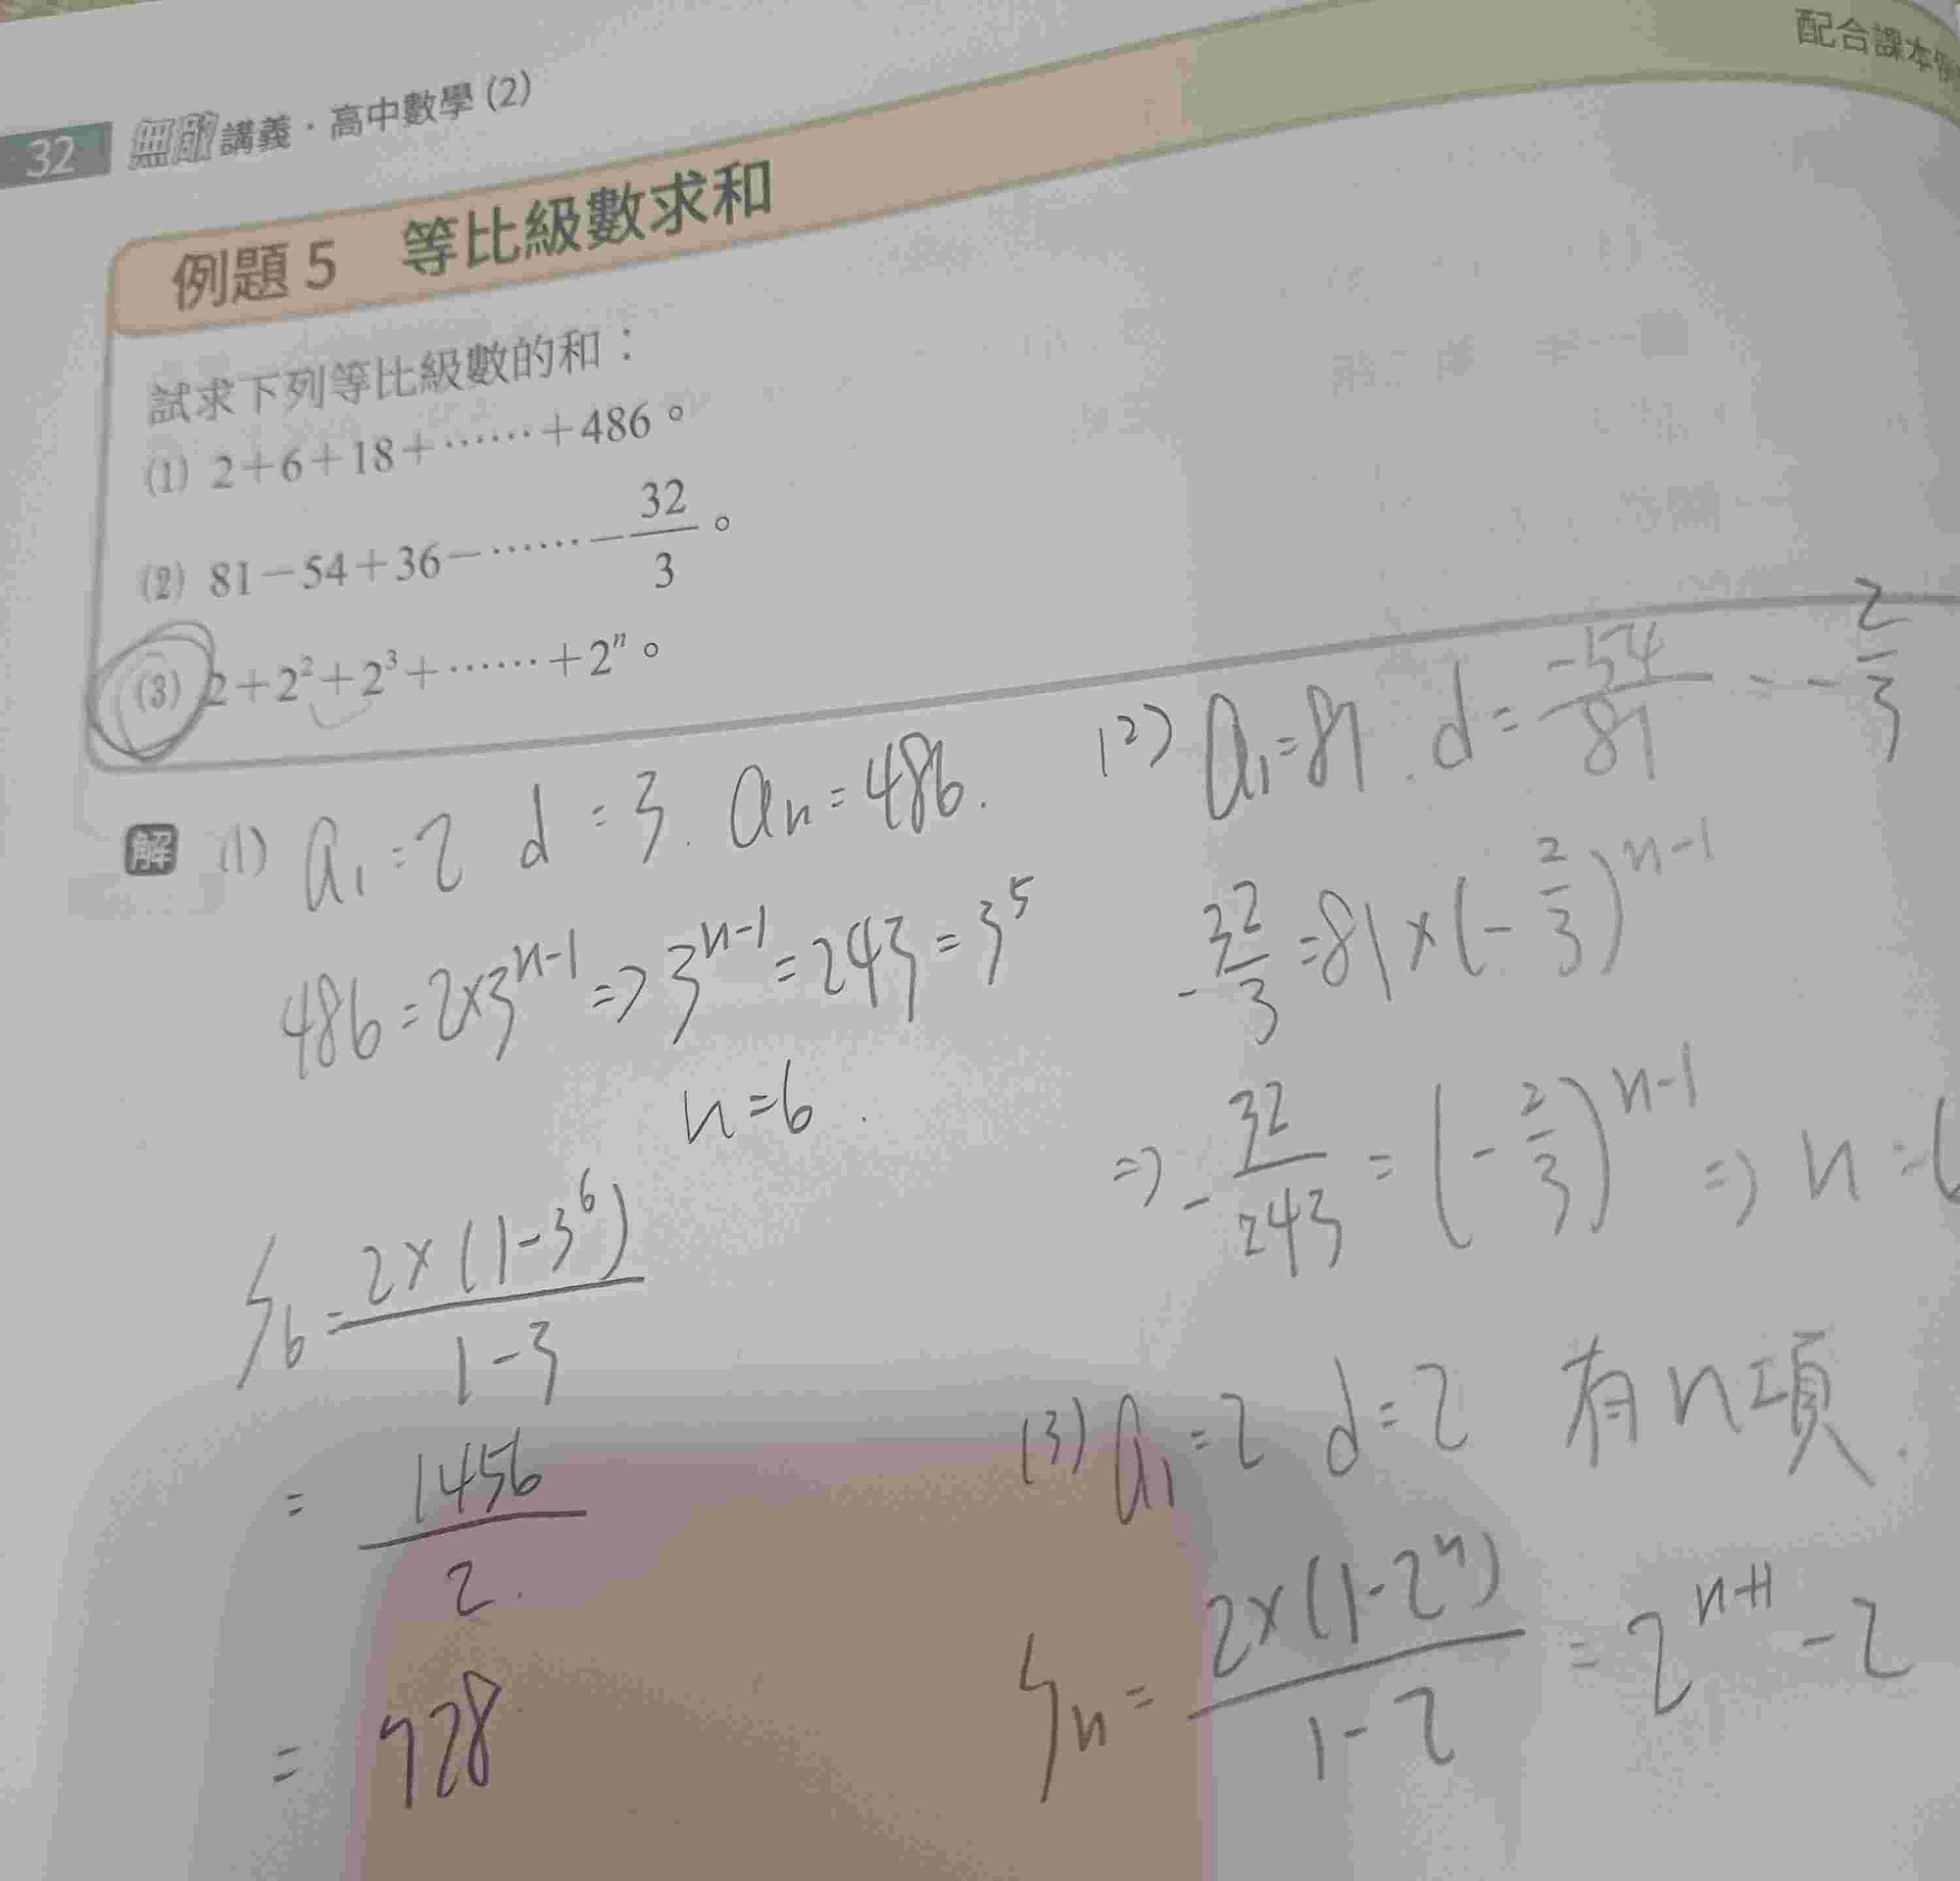 32 無敵講義・高中數學(2)
配合課本
例題5 等比級數求和
試求下列等比級數的和：
(1) 2+6+18+……+486。
(2) 81−54+36−……−32/3。
(3) 2+2²+2³+……+2ⁿ。
解 (1) a₁=2 d=3. aₙ=486.
486=2×3ⁿ⁻¹⇒3ⁿ⁻¹=243=3⁵
n=6.
S₆=2×(1-3⁶)/1-3
=1456/2.
=728
(2) a₁=81. d=-54/81=-2/3
-32/3=81×(-2/3)ⁿ⁻¹
⇒-32/243=(-2/3)ⁿ⁻¹⇒n=
(3) a₁=2 d=2 有n項.
Sₙ=2×(1-2ⁿ)/1-2=2ⁿ⁺¹-2